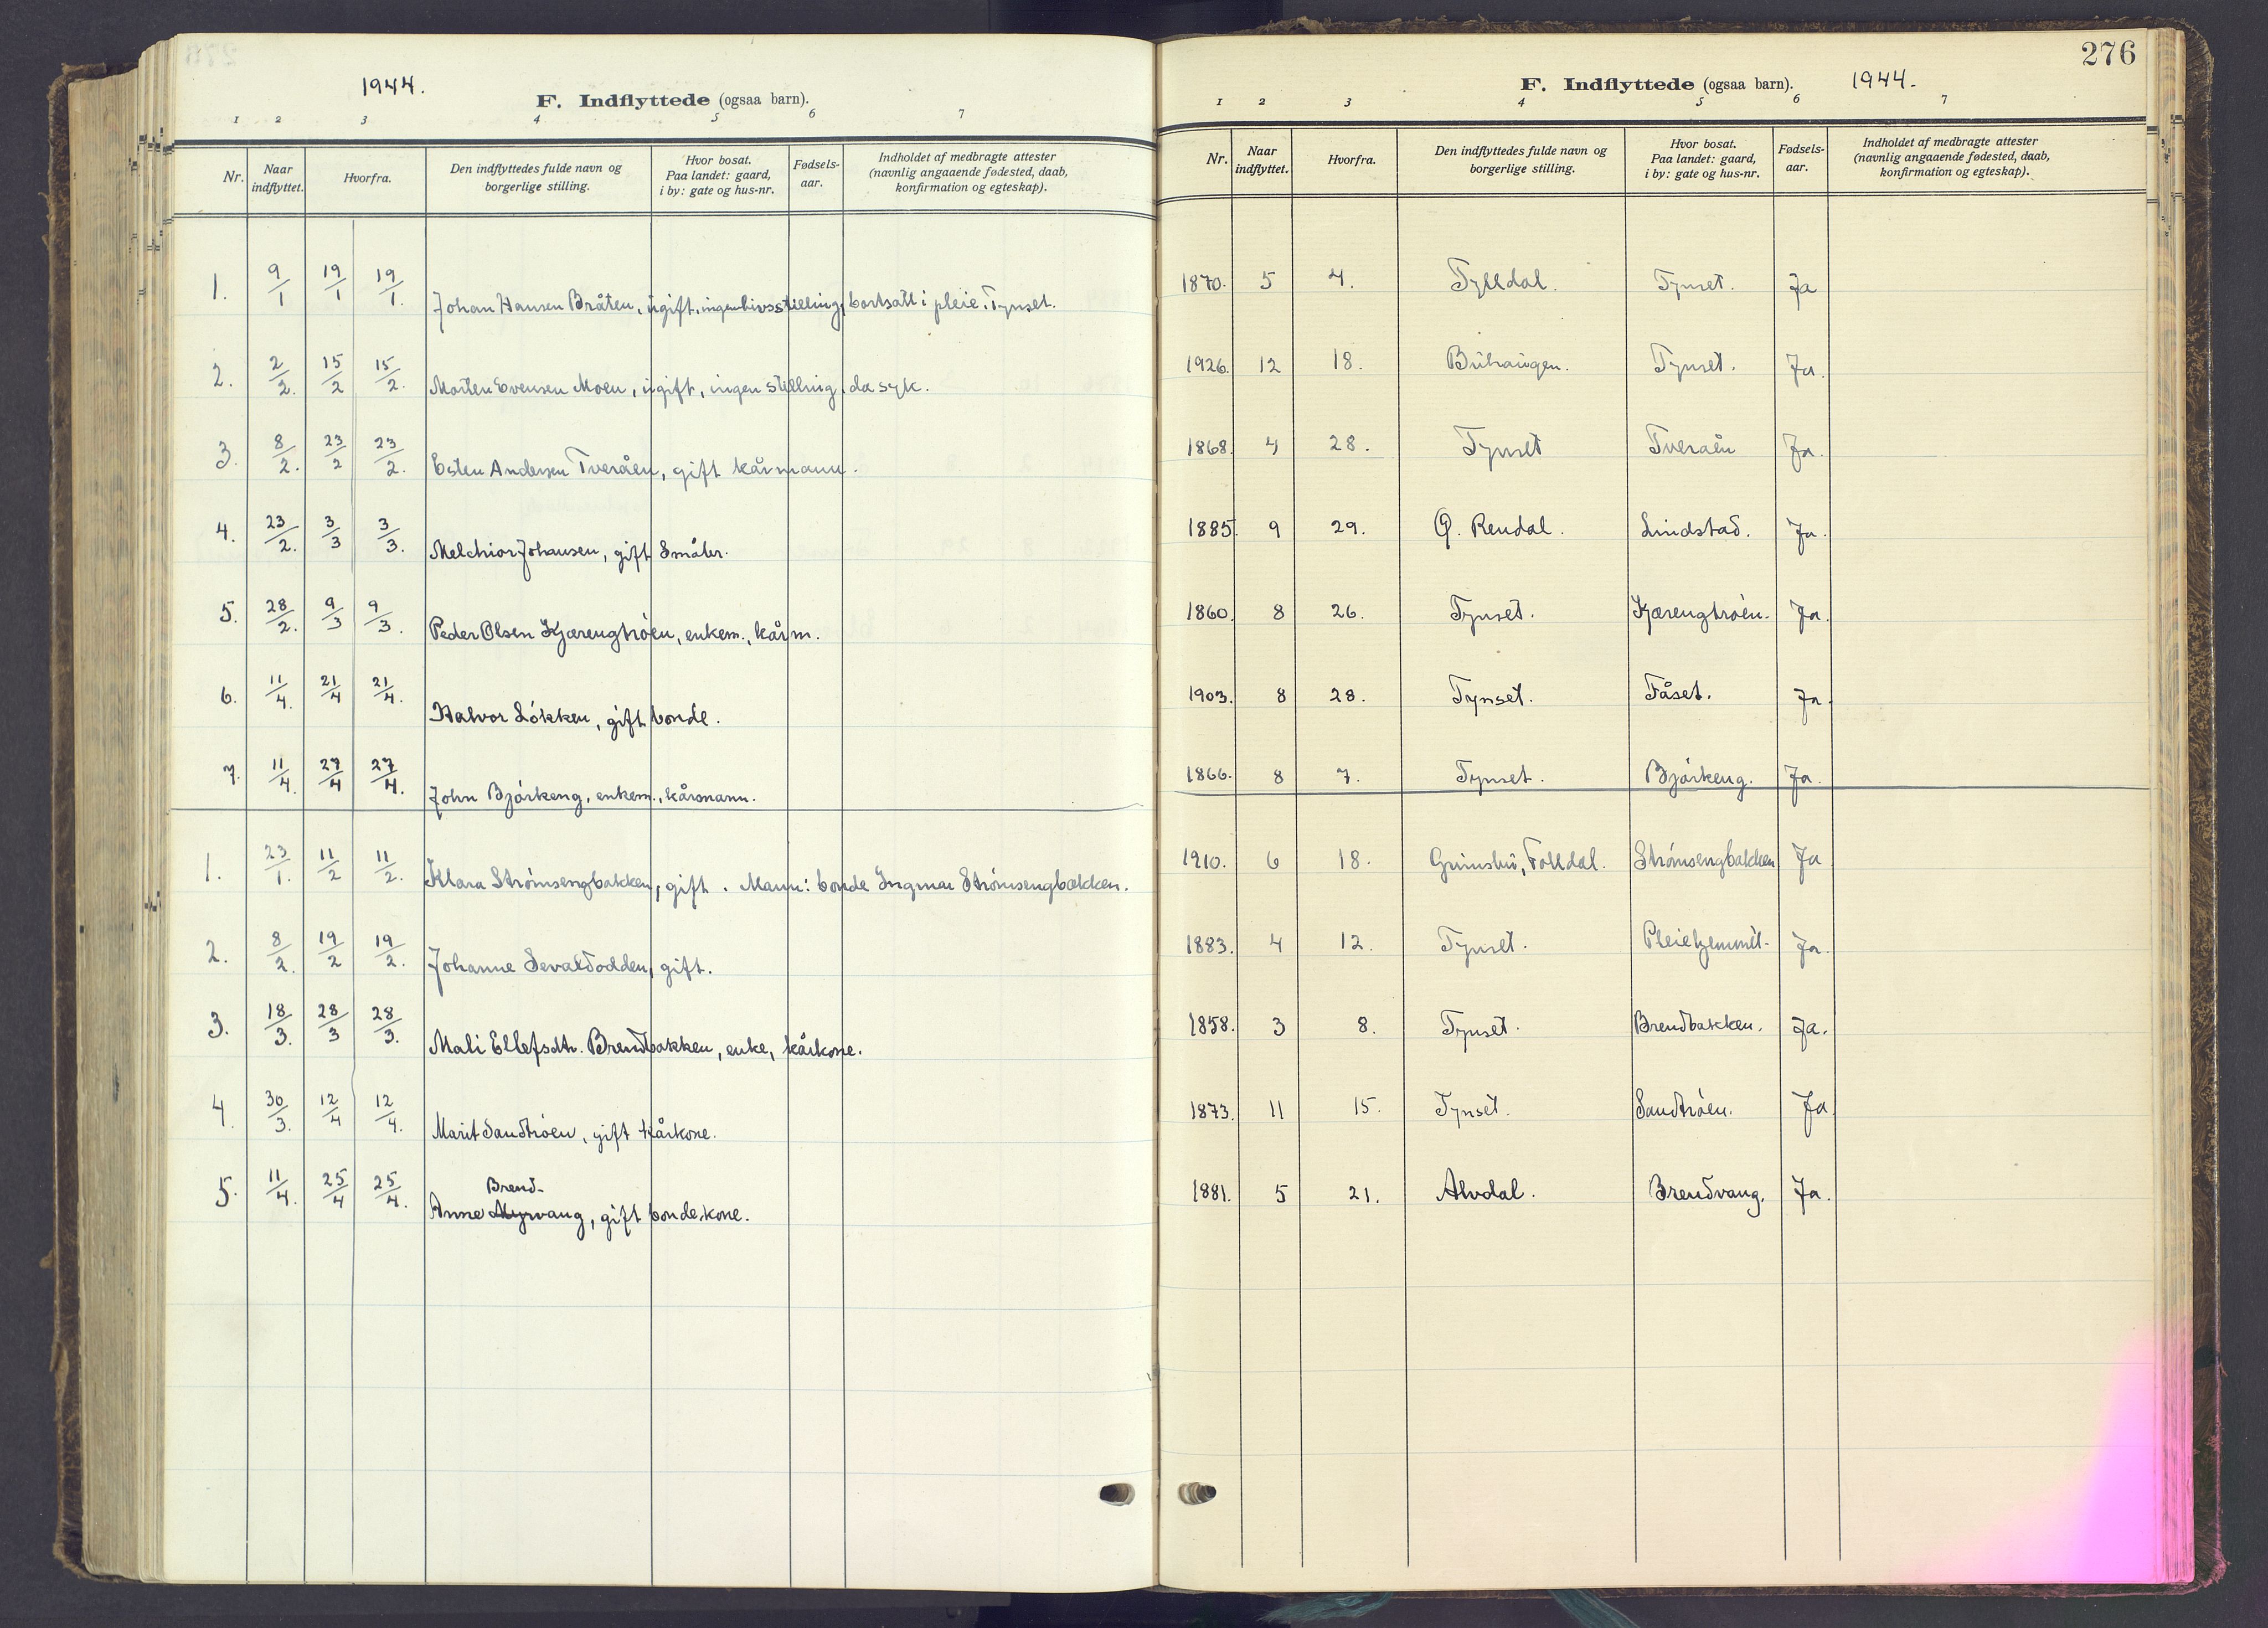 1944.
F. Indflyttede (ogsaa barn).
1 2 3 4 5 6 7
Nr. Naar indflyttet. Hvorfra. Den indflyttedes fulde navn og borgerlige stilling. Hvor bosat. Paa landet: gaard, i by: gate og hus-nr. Fødsels-aar. Indholdet af medbragte attester (navnlig angaaende fødested, daab, konfirmation og egteskap).
1. 9/1 19/1 19/1. Johan Hansen Bråten, ugift, ingen livsstilling, bortsatt i pleie. Tynset.
2. 2/2. 15/2 15/2. Morten Evensen Moen, ugift, ingen stilling, da syk.
3. 8/2. 23/2 23/2. Esten Andersen Tveråen, gift kårmann.
4. 23/2. 3/3 3/3. Melchior Johansen, gift Småbr.
5. 28/2. 9/3 9/3. Peder Olsen Kjærengtrøen, enkem., kårm.
6. 11/4. 21/4 21/4. Halvor Løkken, gift bonde.
7. 11/4. 27/4 27/4. John Bjørkeng, enkem., kårmann.
1. 23/1. 11/2 11/2. Klara Strømsengbakken, gift. Mann: bonde Ingmar Strømsengbakken.
2. 8/2. 19/2 19/2. Johanne Sevaldodden, gift.
3. 18/3. 28/3 28/3. Mali Ellefsdtr. Brendbakken, enke, kårkone.
4. 30/3. 12/4 12/4. Marit Sandtrøen, gift kårkone.
Brend-
5. 11/4. 25/4 25/4. Anne Myrvang, gift bondekone.
276
F. Indflyttede (ogsaa barn). 1944.
1 2 3 4 5 6 7
Nr. Naar indflyttet. Hvorfra. Den indflyttedes fulde navn og borgerlige stilling. Hvor bosat. Paa landet: gaard, i by: gate og hus-nr. Fødsels-aar. Indholdet af medbragte attester (navnlig angaaende fødested, daab, konfirmation og egteskap).
1870. 5 4. Tylldal. Tynset. Ja
1926. 12 18. Buhaugen. Tynset. Ja.
1868. 4 28. Tynset Tveråen Ja.
1885. 9 29. Ø. Rendal. Lindstad. Ja.
1860. 8 26. Tynset. Kjærengtrøen. Ja.
1903. 8 28. Tynset. Fåset. Ja.
1866. 8 7. Tynset. Bjørkeng. Ja.
1910. 6 18. Grimsbu, Folldal. Strømsengbakken Ja
1883. 4 12. Tynset. Pleiehjemmet. Ja.
1858. 3 8. Tynset. Brendbakken. Ja.
1873. 11 15. Tynset. Sandtrøen. Ja.
1881. 5 21. Alvdal. Brendvang. Ja.